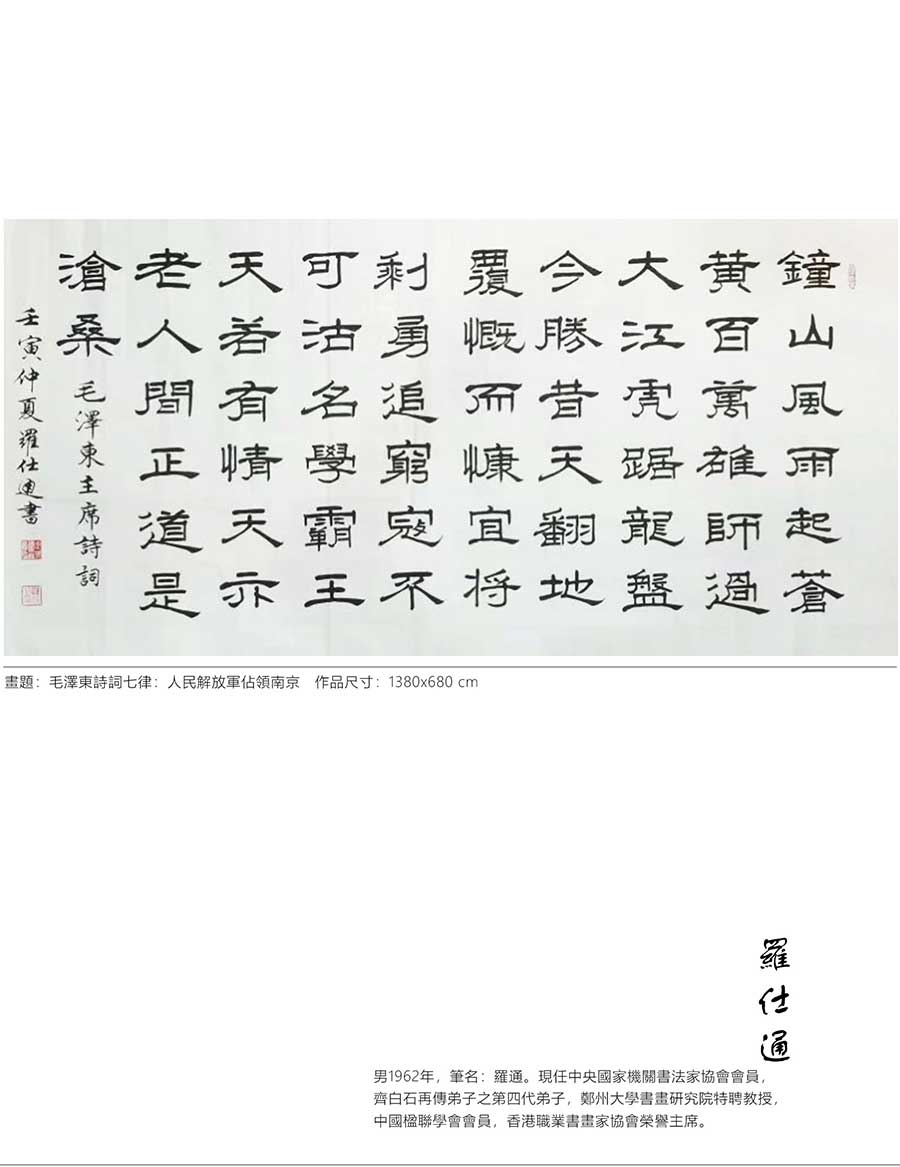 鐘山風雨起蒼
黃百萬雄師過
大江虎踞龍盤
今勝昔天翻地
覆慨而慷宜將
剩勇追窮寇不
可沽名學霸王
天若有情天亦
老人間正道是
滄桑 毛澤東主席詩詞
壬寅仲夏羅仕通書
畫題：毛澤東詩詞七律：人民解放軍佔領南京　作品尺寸：1380x680 cm
羅仕通
男1962年，筆名：羅通。現任中央國家機關書法家協會會員，
齊白石再傳弟子之第四代弟子，鄭州大學書畫研究院特聘教授，
中國楹聯學會會員，香港職業書畫家協會榮譽主席。